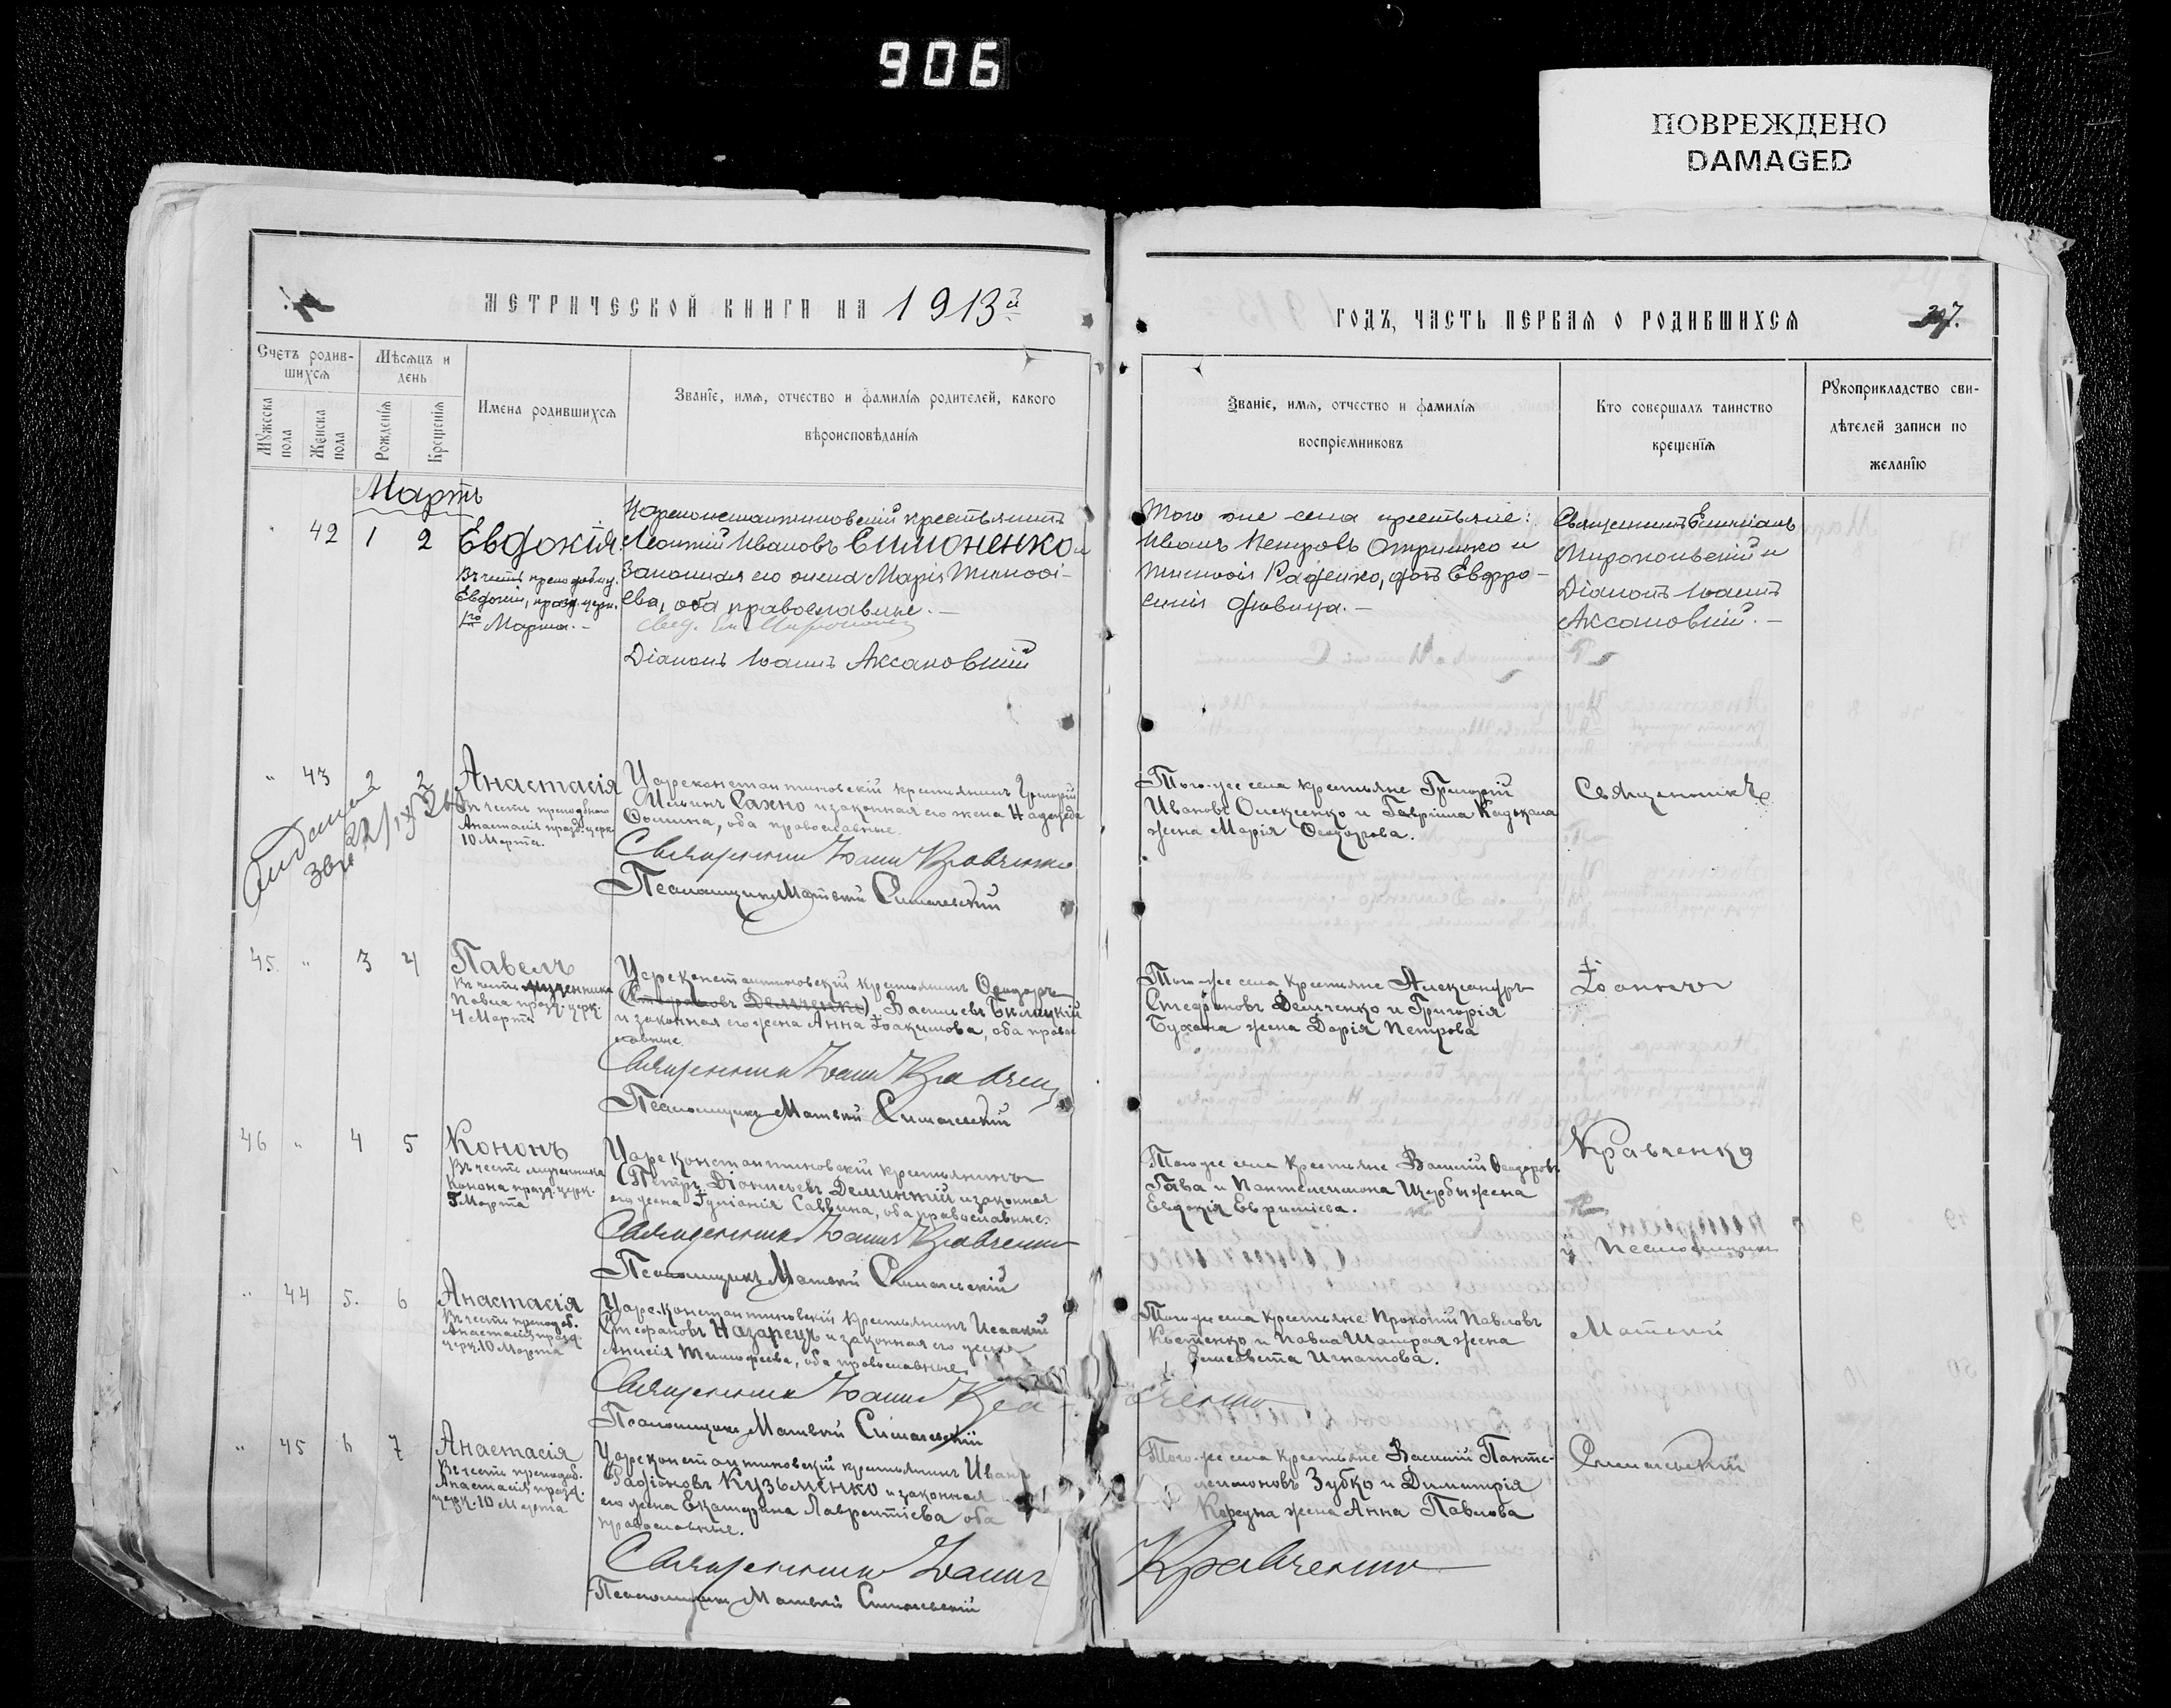 906
ПОВРЕЖДЕНО
DAMAGED
МЕТРИЧЕСКОЙ КНИГИ НА 1913й
Счетъ родив-
шихся
Мѣсяцъ и
день
Мужеска
пола
Женска
пола
Рожденія
Крещенія
Имена родившихся
Званіе, имя, отчество и фамилія родителей, какого
вѣроисповѣданія
Мартъ
42 1 2
Евдокія
Въ честь преподобмуч.
Евдокіи, празд. церк.
1го Марта.
Цареконстантиновскій крестьянинъ
Леонтій Ивановъ Симоненко и
законная его жена Марія Тимооі-
ева, оба православные.
Діаконъ Іоаннъ Аксаковскій
43 2 2
Анастасія
Въ честь преподбной
Анастасіи празд. церк.
10 Марта.
Цареконстантиновскій крестьянинъ Григорій
Ильинъ Сахно и законная его жена Надежда
Ѳомина, оба православные.
Священникъ Іоаннъ Кравченко
Псаломщикъ Матвѣй Симачевскій
45. 3 4
Павелъ
Въ честь мученника
Павла празд. церк.
4 Марта
Цареконстантиновскій крестьянинъ Ѳеодоръ
(Стефановъ Демченко) Васильевъ Билицкій
и законная его жена Анна Іоакимова, оба право
славные.
Священникъ Іоаннъ Кравченко
Псаломщикъ Матвѣй Симачевскій
46 4 5
Кононъ
Въ честь мученника
Конона празд. церк.
5 Марта
Цареконстантиновскій крестьянинъ
Петръ Діонисьевъ и законная
его жена Іуліанія Саввина, оба православные.
Священникъ Іоаннъ Кравченко
Псаломщикъ Матвѣй Симачевскій
44 5. 6
Анастасія
Въ честь преподоб.
Анастасіи празд.
церк. 10 Марта
Цареконстантиновскій крестьянинъ Исаакій
Стефановъ Назарецъ и законная его жена
Анисія Тимофеева, оба православные
Священникъ Іоаннъ Кравченко
Псаломщикъ Матвѣй Симачевскій
45 6 7
Анастасія
Въ честь преподоб.
Анастасіи празд.
церк. 10 Марта
Цареконстантиновскій крестьянинъ Иванъ
Кузьменко и законная
его жена Екатерина Лаврентіева оба
православные.
Священникъ Іоаннъ Кравченко
Псаломщикъ Матвѣй Симачевскій
ГОДЪ, ЧАСТЬ ПЕРВАЯ О РОДИВШИХСЯ
Званіе, имя, отчество и фамилія
воспріемниковъ
Кто совершалъ таинство
крещенія
Рукоприкладство сви-
дѣтелей записи по
желанію
Того же села крестьяне:
Иванъ Петровъ и
Радченко, дочь Евфро-
синія дѣвица.
Священникъ
и
Діаконъ Іоаннъ
Аксаковскій.
Того-же села крестьяне Григорій
Ивановъ Олексенко и Гавріила
жена Марія Ѳеодорова.
Священникъ
Того-же села крестьяне Александръ
Стефановъ Демченко и Григорія
Бухана жена Дарія Петрова
Іоаннъ
Того же села крестьяне Василій Ѳеодоровъ
Гава и Пантелеимона Щербы жена
Евдокія
Кравченко
и Псаломщикъ
Того же села крестьяне Прокопій Павловъ
Костенко и Павла Шатрая жена
Елисавета Игнатова.
Матвѣй
Того-же села крестьяне Василій Панте-
леимоновъ Зубко и Димитрія
жена Анна Павлова
Симачевскій